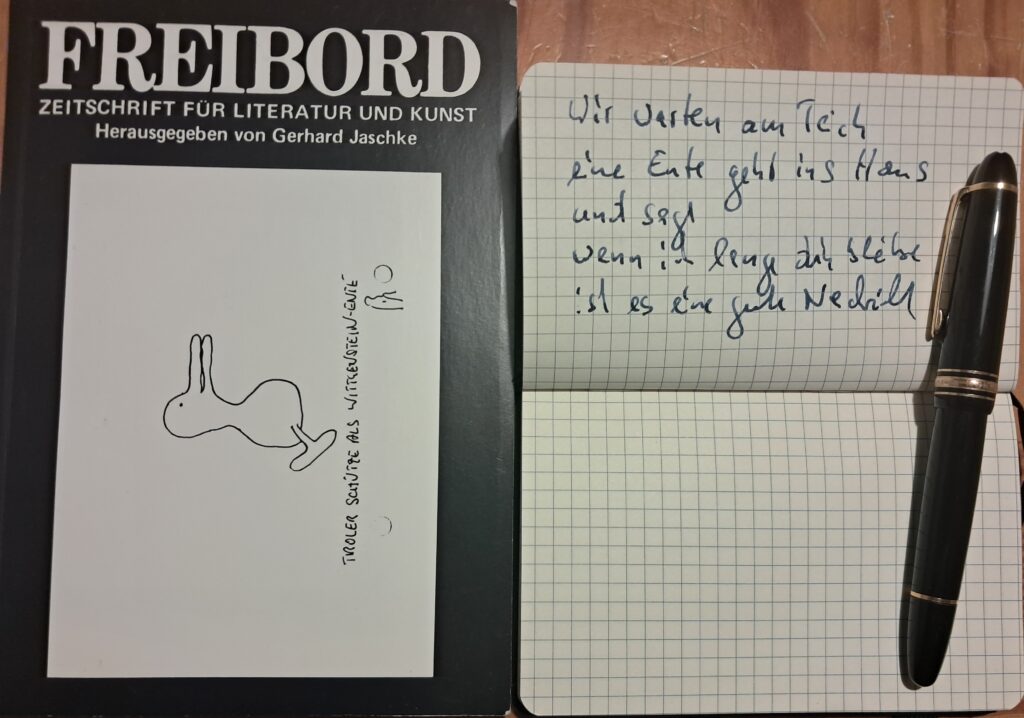 FREIBORD
ZEITSCHRIFT FÜR LITERATUR UND KUNST
Herausgegeben von Gerhard Jaschke
TIROLER SCHÜTZE ALS WITTGENSTEIN-ENTE
Wir warten am Teich
eine Ente geht ins Haus
und sagt
wenn ich lange bleibe
ist es eine gute Nachricht